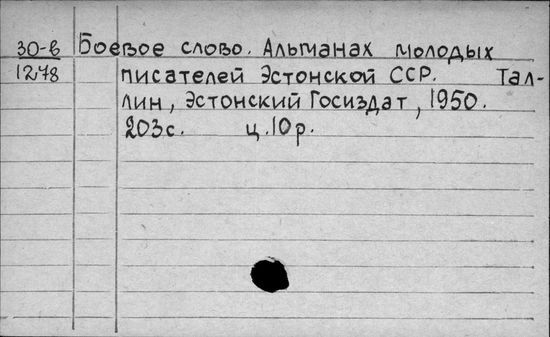 30-в Боевое слово. Альманах молодых
1278 писателей Эстонской ССР. Тал-
лин, Эстонский Госиздат, 1950.
203с. ц.10р.